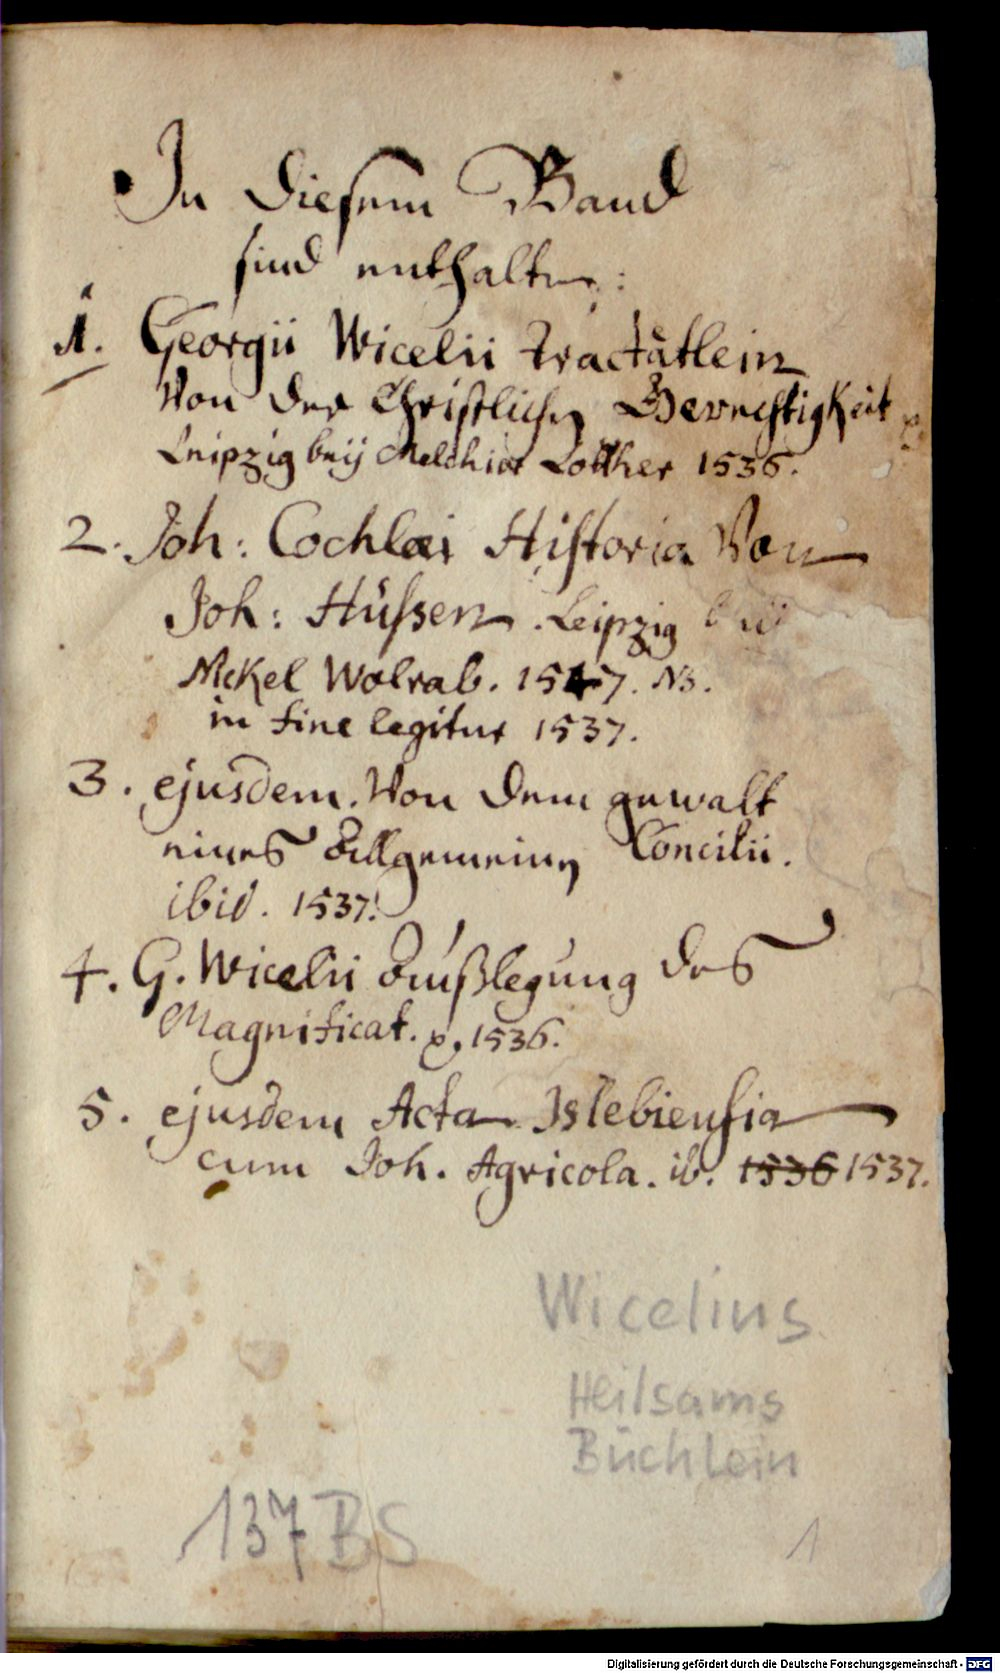 In diesem Band
sind enthalten:
1. Georgii Wicelii Tractätlein
Von der Christlichen Gerechtigkeit
Leipzig beÿ Melchior Lotther 1536.
2. Joh: Cochlæi Historia Von
Joh: Hussen. Leipzig beÿ
Nickel Wolrab. 1547. NB.
in fine legitur 1537.
3. ejusdem. Von dem gewalt
eines Allgemeinen Concilii.
ibid. 1537.
4. G. Wicelii Außlegung des
Magnificat. 1536.
5. ejusdem Acta Islebiensia
cum Joh. Agricola. ib. 1536 1537.
Wicelius
Heilsams
Büchlein
137 BS
1
Digitalisierung gefördert durch die Deutsche Forschungsgemeinschaft - DFG